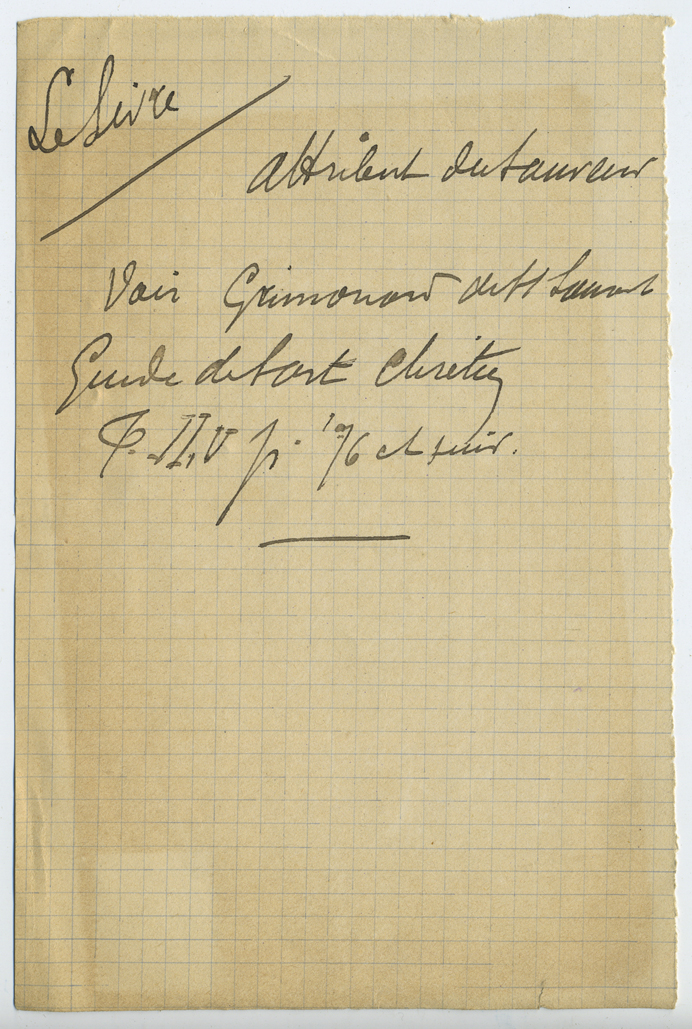 Le Livre
Attribut du Sauveur
Voir Grimouard de St Laurent
Guide de l'art Chrétien
T. II, p. 176 et suiv.